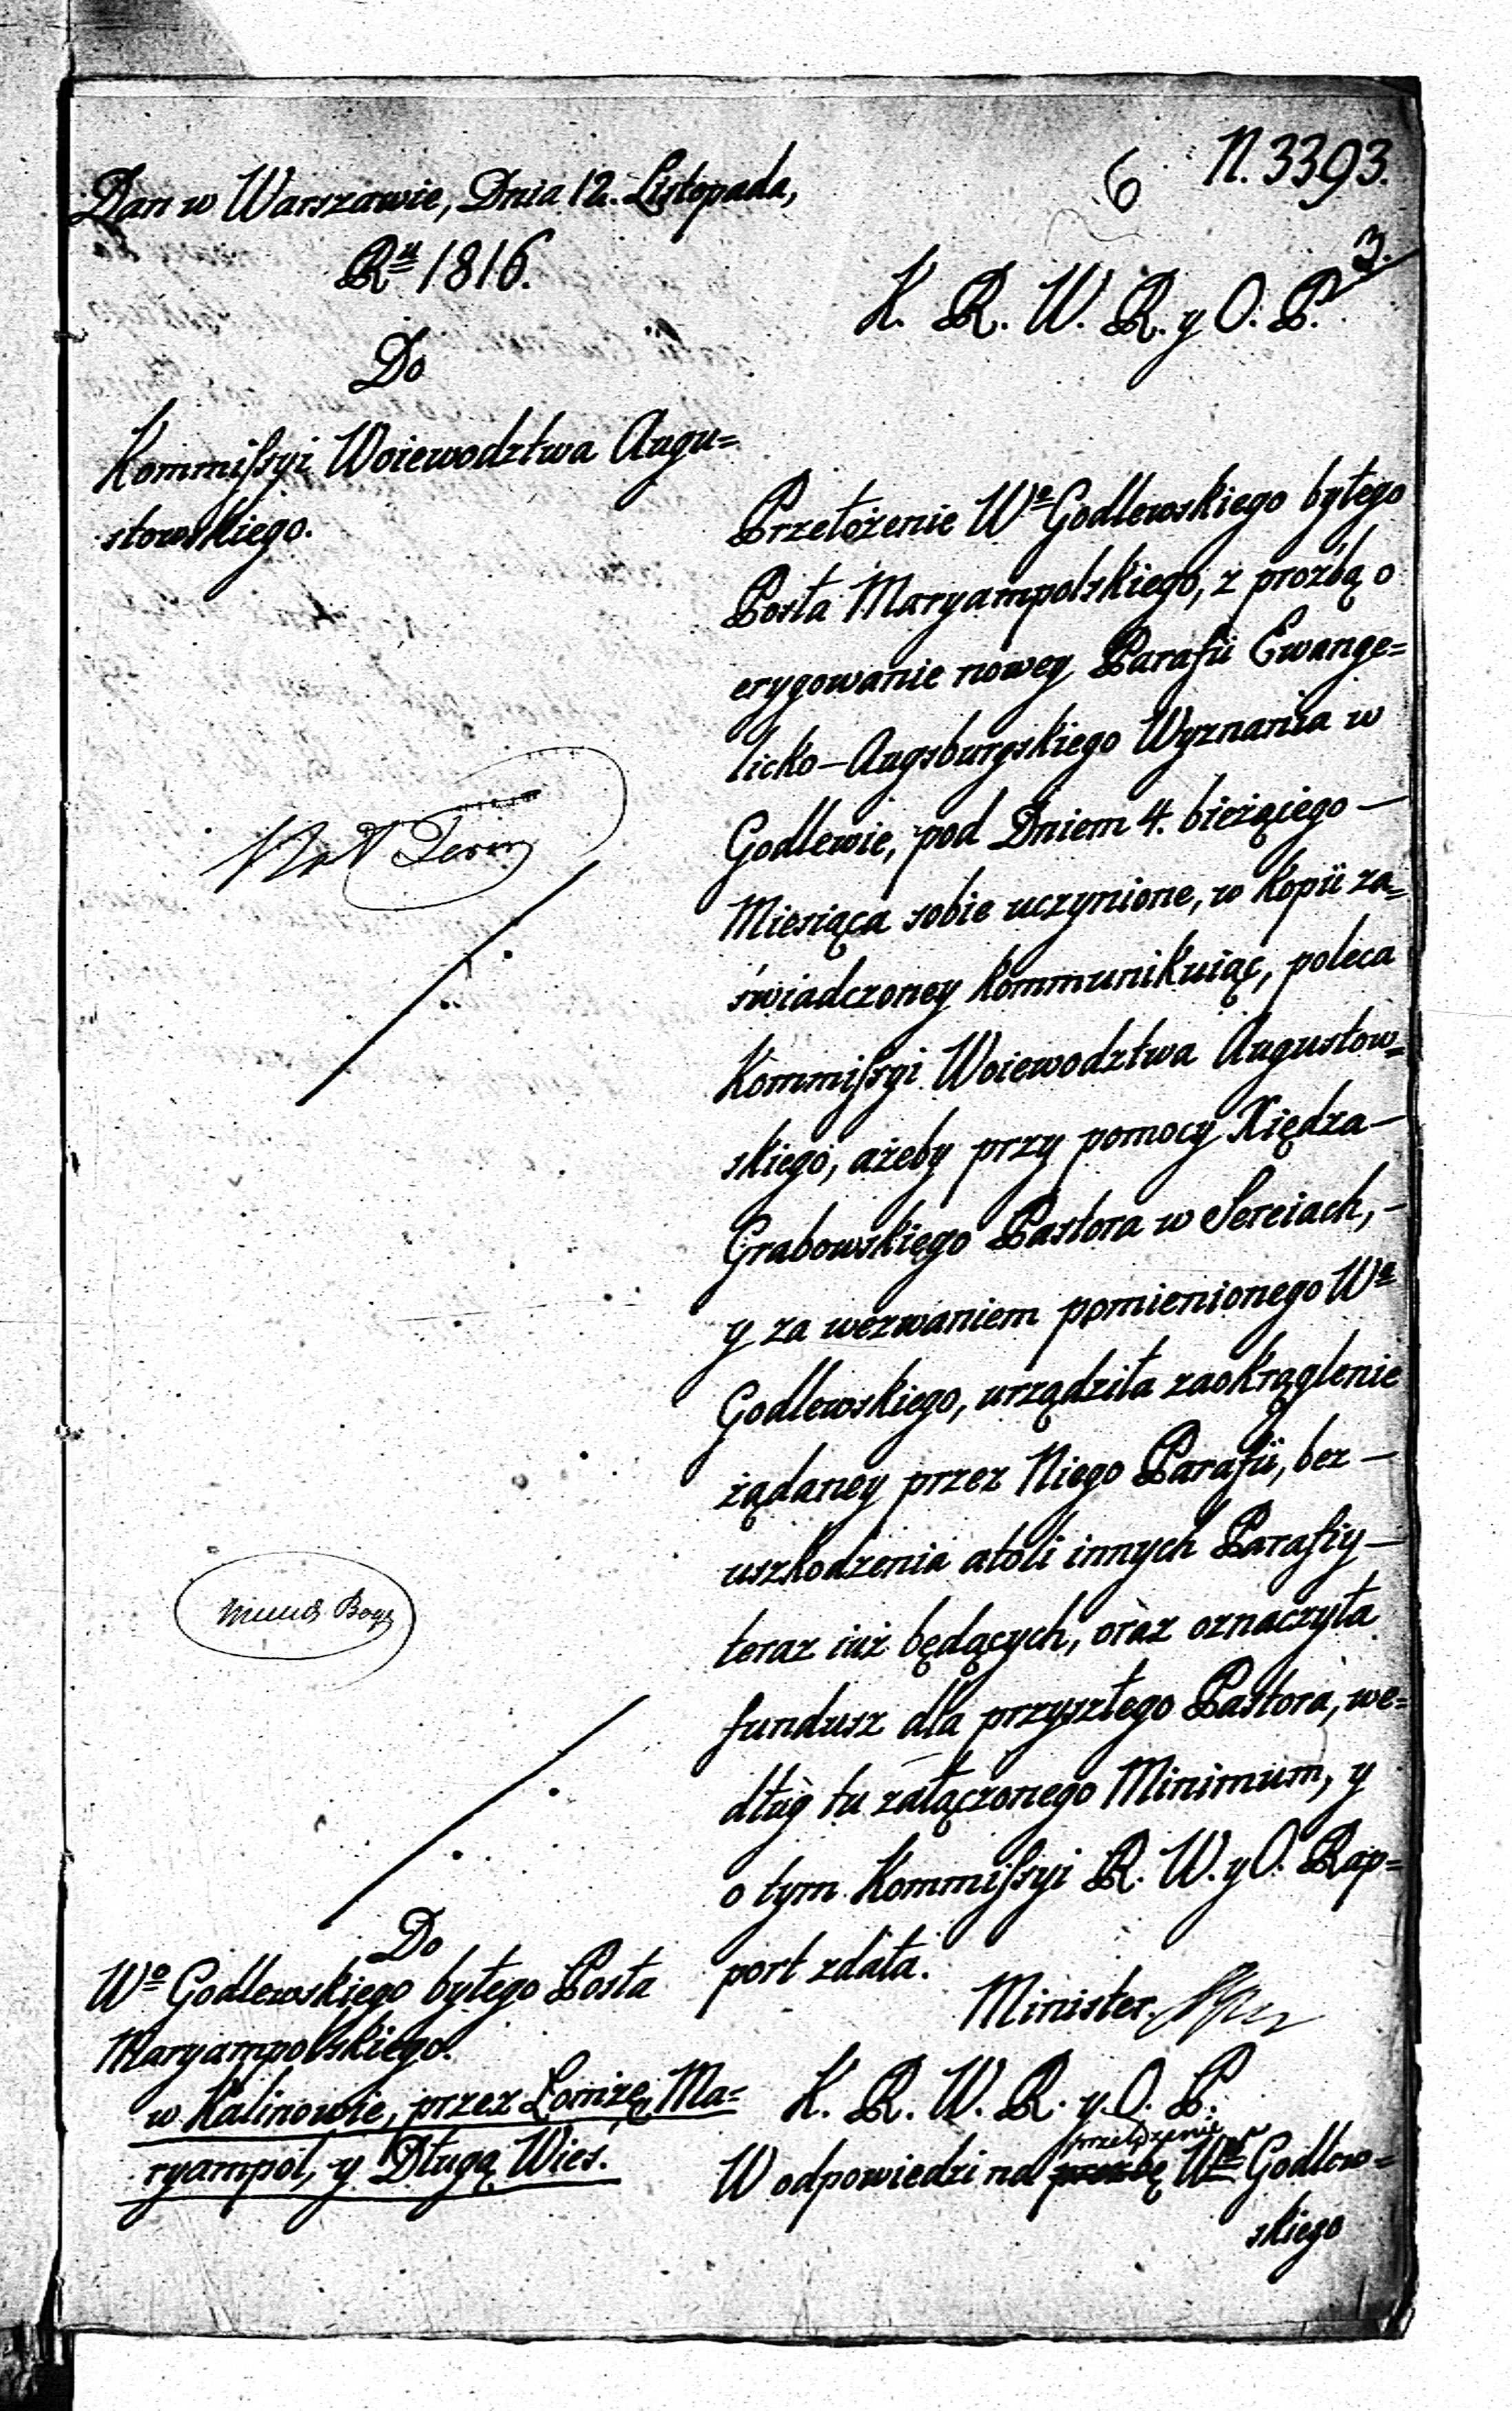 N. 3393.
6
3.
Dan w Warszawie, Dnia 12. Listopada,
Ru 1816.
Do
Kommissyi Woiewodztwa Augu=
stowskiego.
K. R. W. R. y O. P.
Przełożenie Wo Godlewskiego byłego
Posła Maryampolskiego, z prozbą o
erygowanie nowey Parafii Ewange=
licko-Augsburgskiego Wyznania w
Godlewie, pod Dniem 4. bieżąciego —
Miesiąca sobie uczynione, w kopii za=
świadczoney kommunikuiąc, poleca
Kommissyi Woiewodztwa Augustow=
skiego, ażeby przy pomocy Xiędza —
Grabowskiego Pastora w Sereiach, —
y za wezwaniem pomienionego Wo
Godlewskiego, urządziła zaokrąglenie
żądaney przez Niego Parafii, bez —
uszkodzenia atoli innych Parafiy —
teraz iuż będących, oraz oznaczyła
fundusz dla przyszłego Pastora, we=
dług tu załączonego Minimum, y
o tym Kommissyi R. W. y O. Rap=
port zdała.
Minister.
Do
Wo Godlewskiego byłego Posła
Maryampolskiego.
w Kalinowie, przez Łomżę, Ma=
ryampol, y Długą Wieś.
K. R. W. R. y O. P.
W odpowiedzi na przełożenie Wo Godlew=
skiego